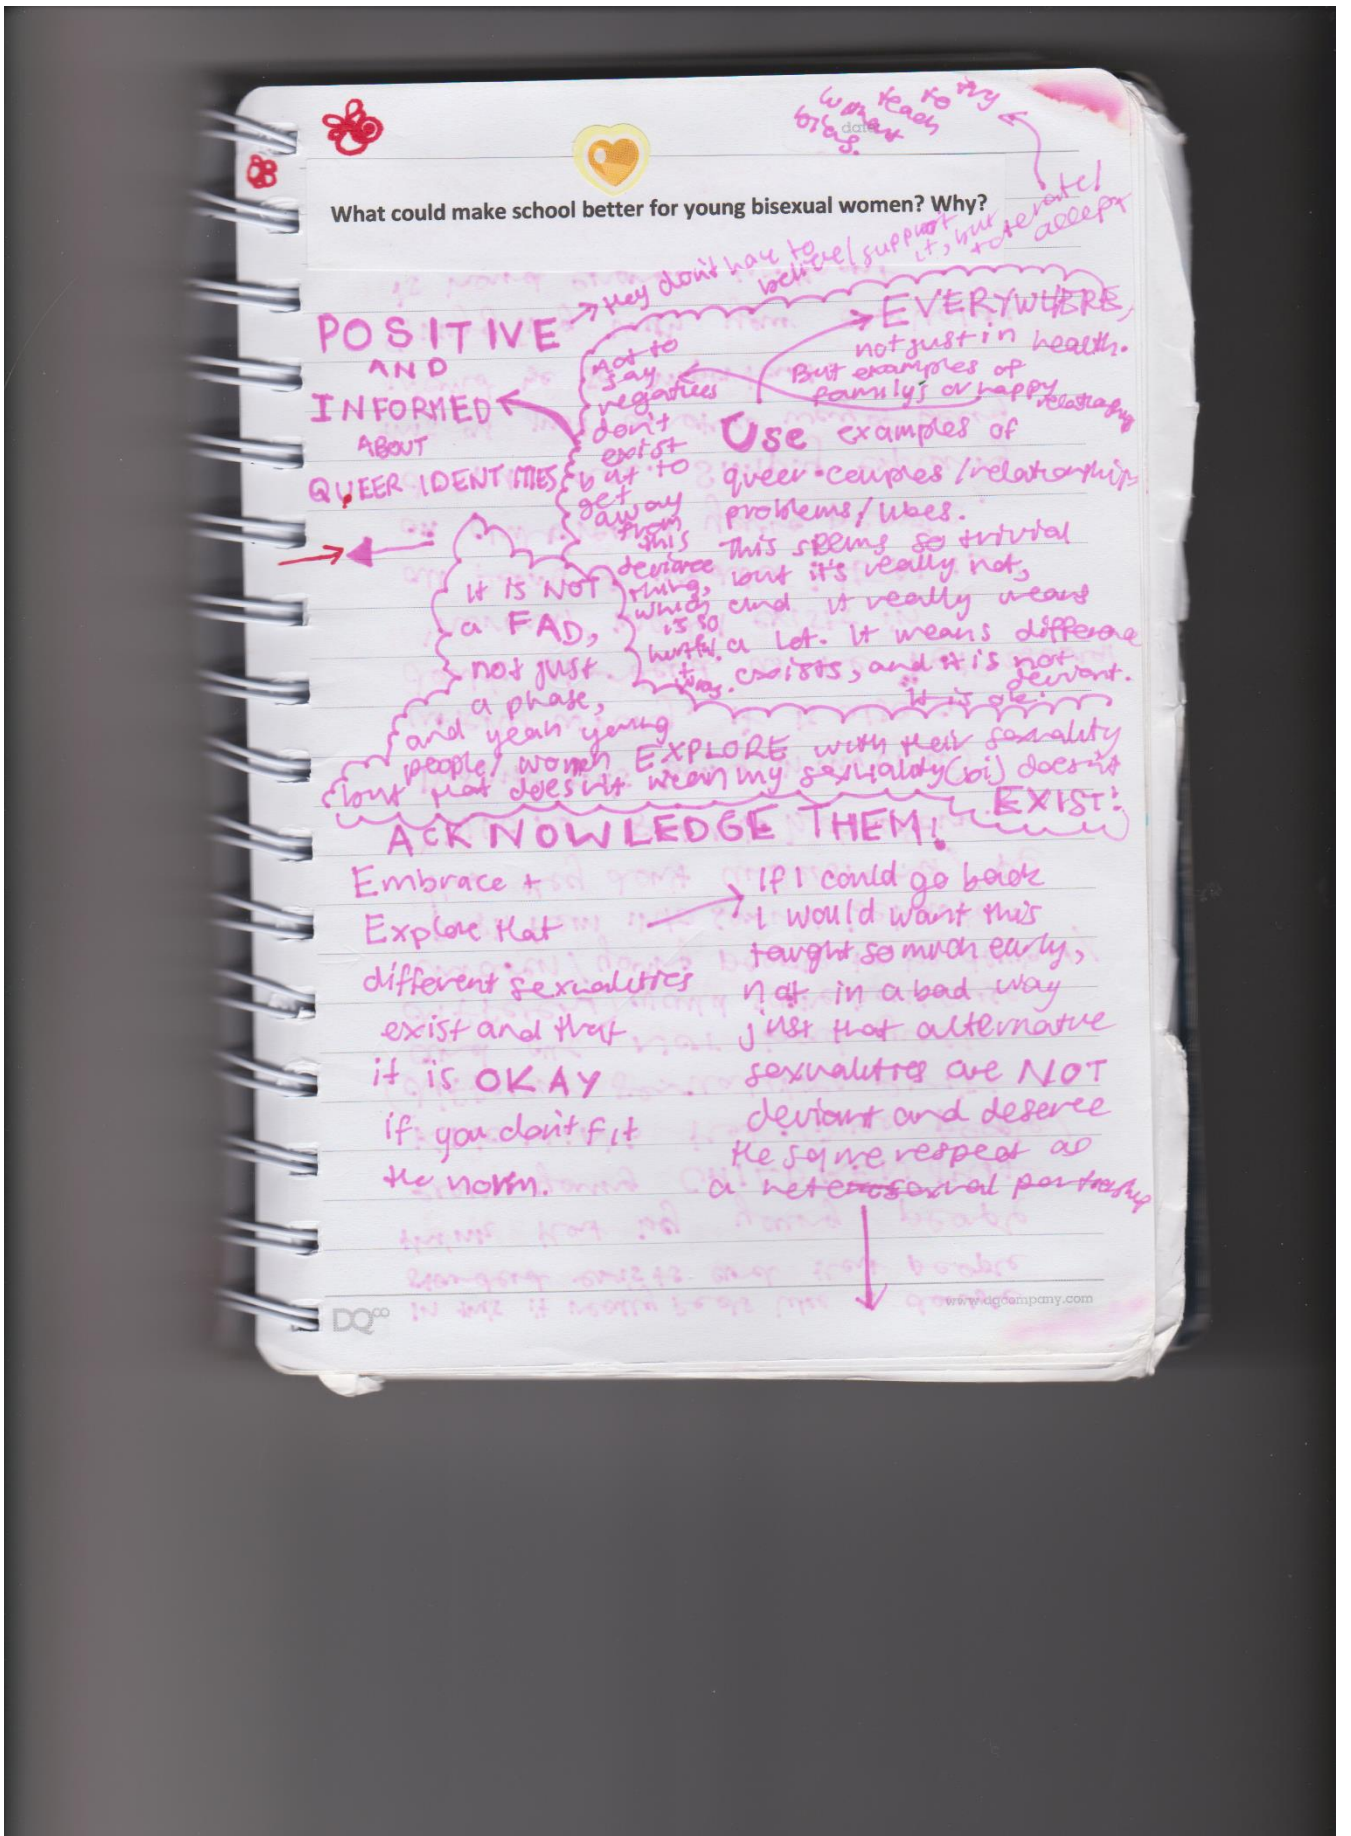 What could make school better for young bisexual women? Why?
date
to try
teach
bias.
they don't have to
believe/support
it, but
tolerate/
accept
POSITIVE
AND
INFORMED
ABOUT
QUEER IDENTITIES
EVERYWHERE,
not just in health.
But examples of
family's or happy
relationships
Not to
say
negatives
don't
exist
but to
get
away
from
this
deviance
thing,
which
is so
hurtful
+
wrong.
Use examples of
queer couples/relationships
problems/lives.
This seems so trivial
but it's really not,
and it really means
a lot. It means difference
exists, and it is not
deviant.
It is ok!
It IS NOT
a FAD,
not just
a phase,
and yeah young
people/women EXPLORE with their sexuality
but that doesn't mean my sexuality (bi) doesn't
EXIST!
ACKNOWLEDGE THEM!
Embrace +
Explore that
different sexualities
exist and that
it is OKAY
if you don't fit
the norm.
If I could go back
I would want this
taught so much early,
not in a bad way
just that alternative
sexualities are NOT
deviant and deserve
the same respect as
a heterosexual partnership
DQ
www.dqcompany.com